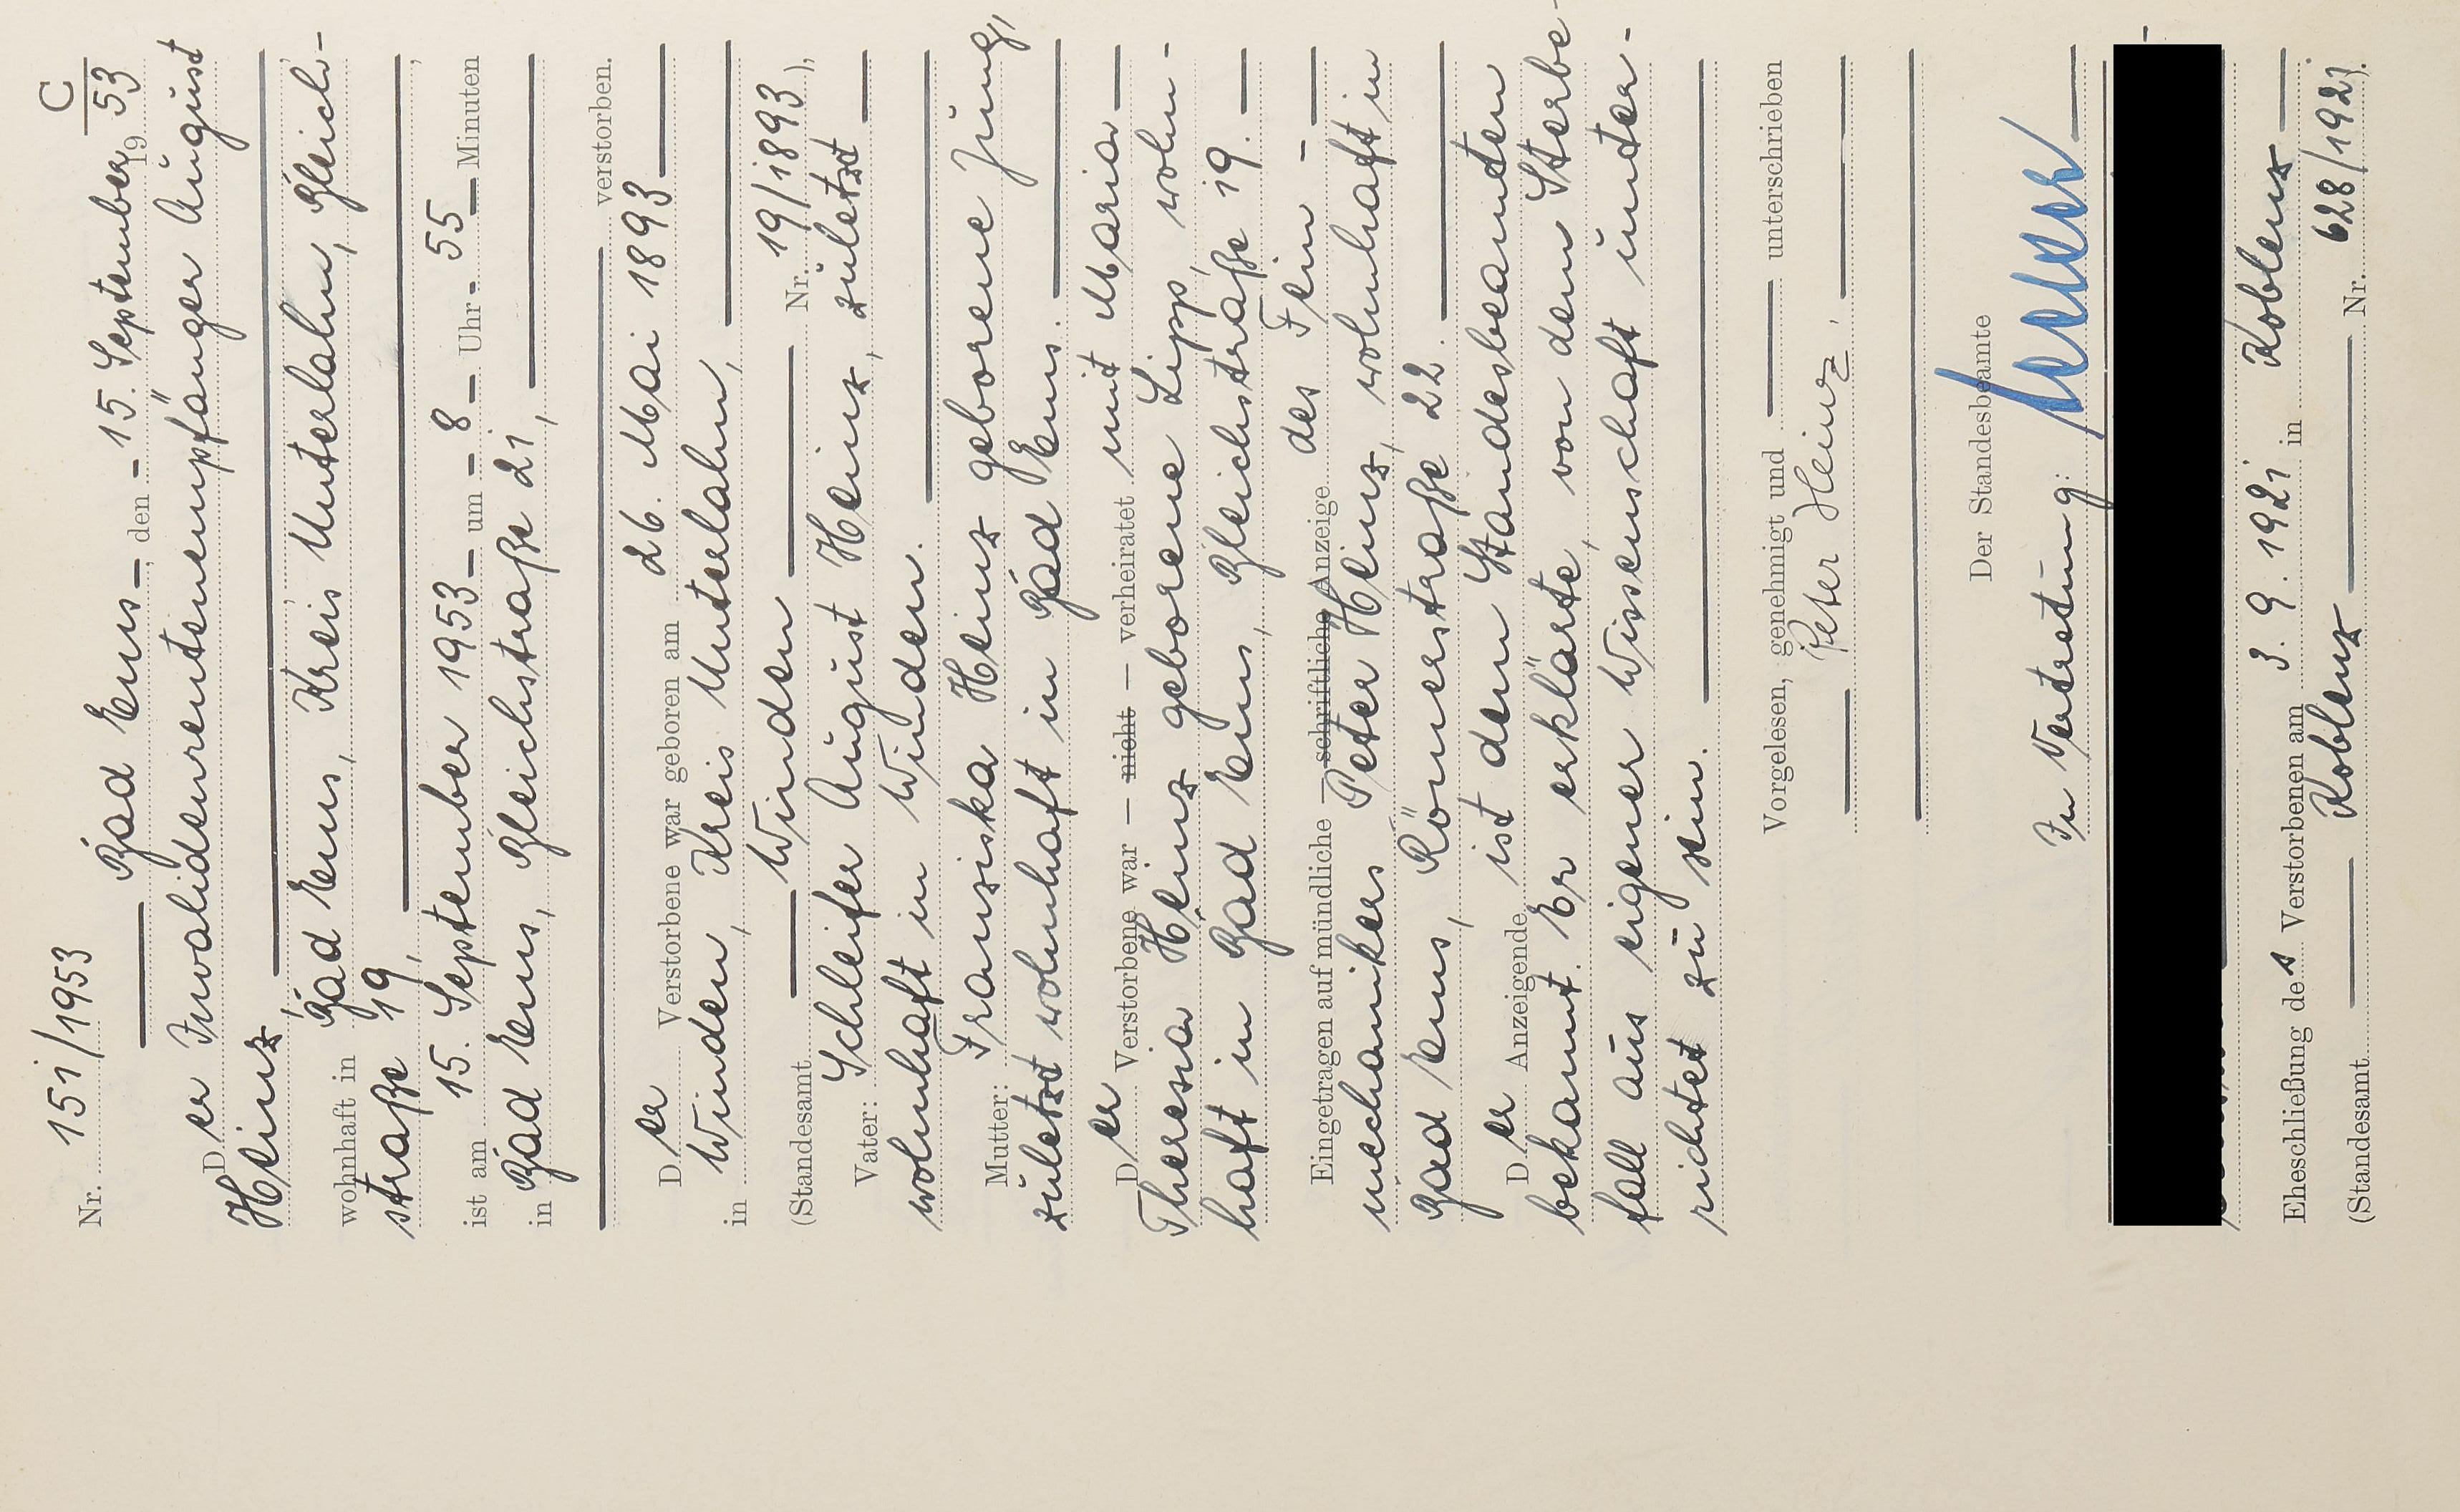 C
Nr. 151/1953
Bad Ems, den 15. September 1953
Der Invalidenrentenempfänger August
Heinz,
wohnhaft in Bad Ems, Kreis Unterlahn, Gleich-
straße 19,
ist am 15. September 1953 um 8 Uhr 55 Minuten
in Bad Ems, Gleichstraße 21,
verstorben.
Der Verstorbene war geboren am 26. Mai 1893
in Winden, Kreis Unterlahn,
(Standesamt Winden Nr. 19/1893),
Vater: Schleifer August Heinz, zuletzt
wohnhaft in Winden.
Mutter: Franziska Heinz geborene Jung,
zuletzt wohnhaft in Bad Ems.
Der Verstorbene war — nicht — verheiratet mit Maria
Theresia Heinz geborene Lipp, wohn-
haft in Bad Ems, Gleichstraße 19.
Eingetragen auf mündliche — schriftliche Anzeige des Fein-
mechanikers Peter Heinz, wohnhaft in
Bad Ems, Römerstraße 22.
Der Anzeigende ist dem Standesbeamten
bekannt. Er erklärte, von dem Sterbe-
fall aus eigener Wissenschaft unter-
richtet zu sein.
Vorgelesen, genehmigt und unterschrieben
Peter Heinz.
Der Standesbeamte
In Vertretung:
Eheschließung des Verstorbenen am 3. 9. 1921 in Koblenz
(Standesamt Koblenz Nr. 628/1921).